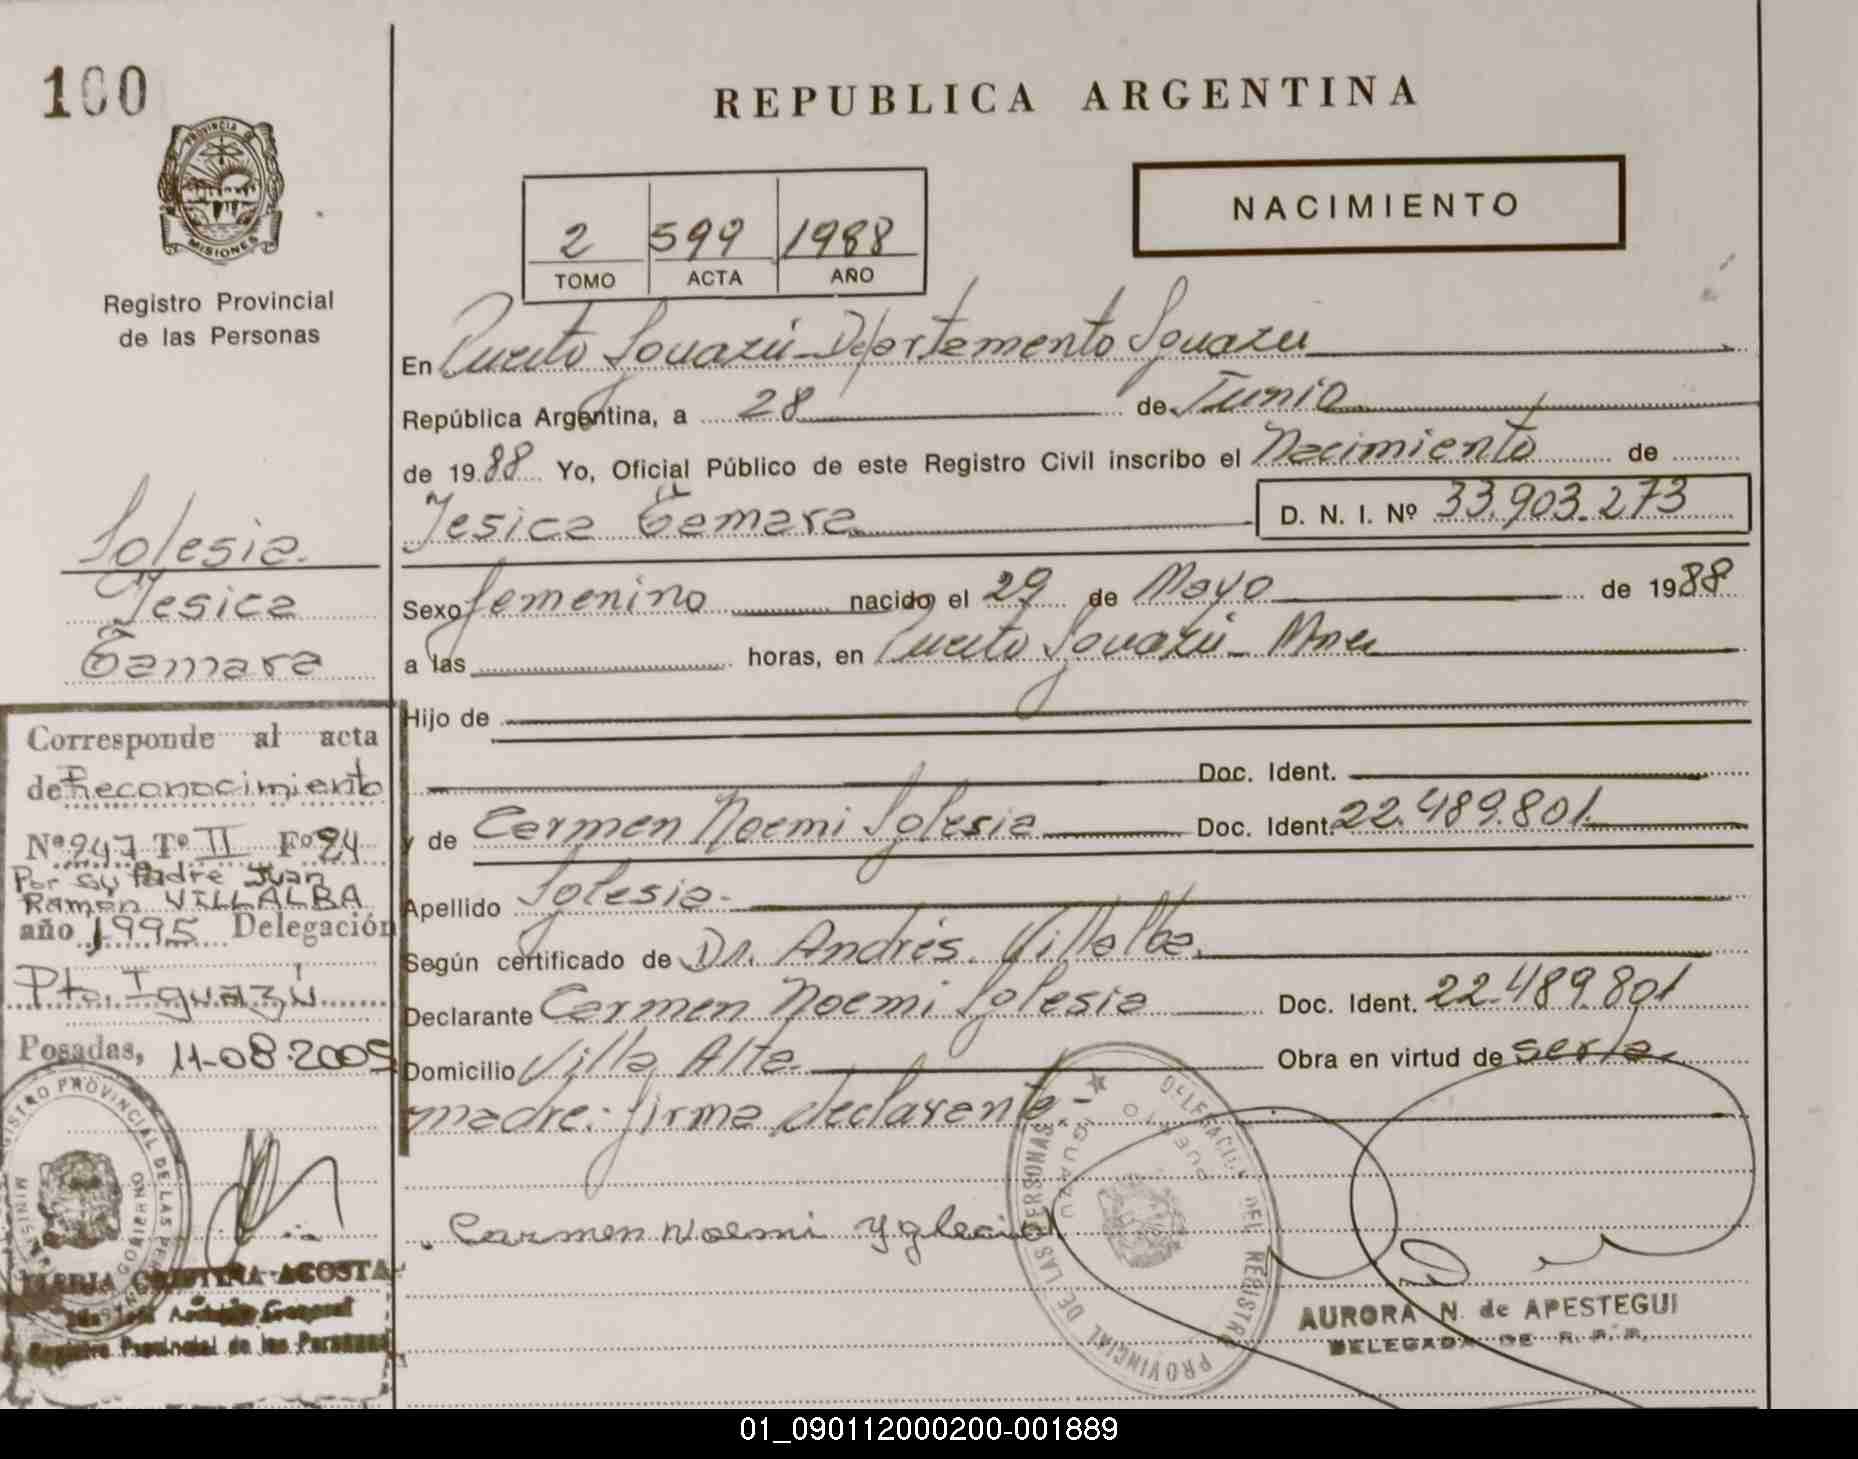 100
REPUBLICA ARGENTINA
PROVINCIA DE
MISIONES
Registro Provincial
de las Personas
NACIMIENTO
2 599 1988
TOMO ACTA AÑO
En Puerto Iguazú - Departamento Iguazu
República Argentina, a 28 de Junio
de 1988 Yo, Oficial Público de este Registro Civil inscribo el Nacimiento de
Yesica Tamara D. N. I. Nº 33.903.273
Sexo femenino nacido el 29 de Mayo de 1988
a las horas, en Puerto Iguazú - Mnes
Hijo de
Doc. Ident.
y de Carmen Noemi Iglesia Doc. Ident. 22.489.801.
Apellido Iglesia.-
Según certificado de Dr. Andrés Villalba.
Declarante Carmen Noemi Iglesia Doc. Ident. 22.489.801
Domicilio Villa Alta. Obra en virtud de ser la
madre: firma declarante-
Carmen Noemi Yglecia
AURORA N. de APESTEGUI
DELEGADA DE R. P. P.
DELEGACION DEL REGISTRO PROVINCIAL DE LAS PERSONAS
PUERTO IGUAZU
Iglesia.
Yesica
Tamara
Corresponde al acta
de Reconocimiento
Nº 947 Tº II Fº 94
Por su Padre Juan
Ramón VILLALBA
año 1995 Delegación
Pto. Iguazú
Posadas, 11-08-2005
REGISTRO PROVINCIAL DE LAS PERSONAS
MARIA CRISTINA ACOSTA
Registro Provincial de las Personas
01_090112000200-001889